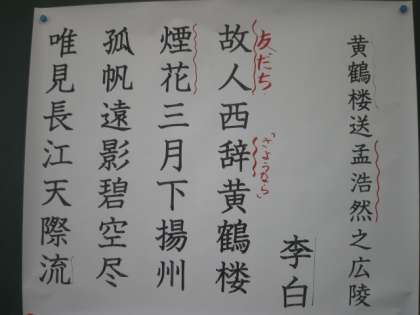 黄鶴楼送孟浩然之広陵
李白
故人西辞黄鶴楼
友だち
さようなら
煙花三月下揚州
孤帆遠影碧空尽
唯見長江天際流